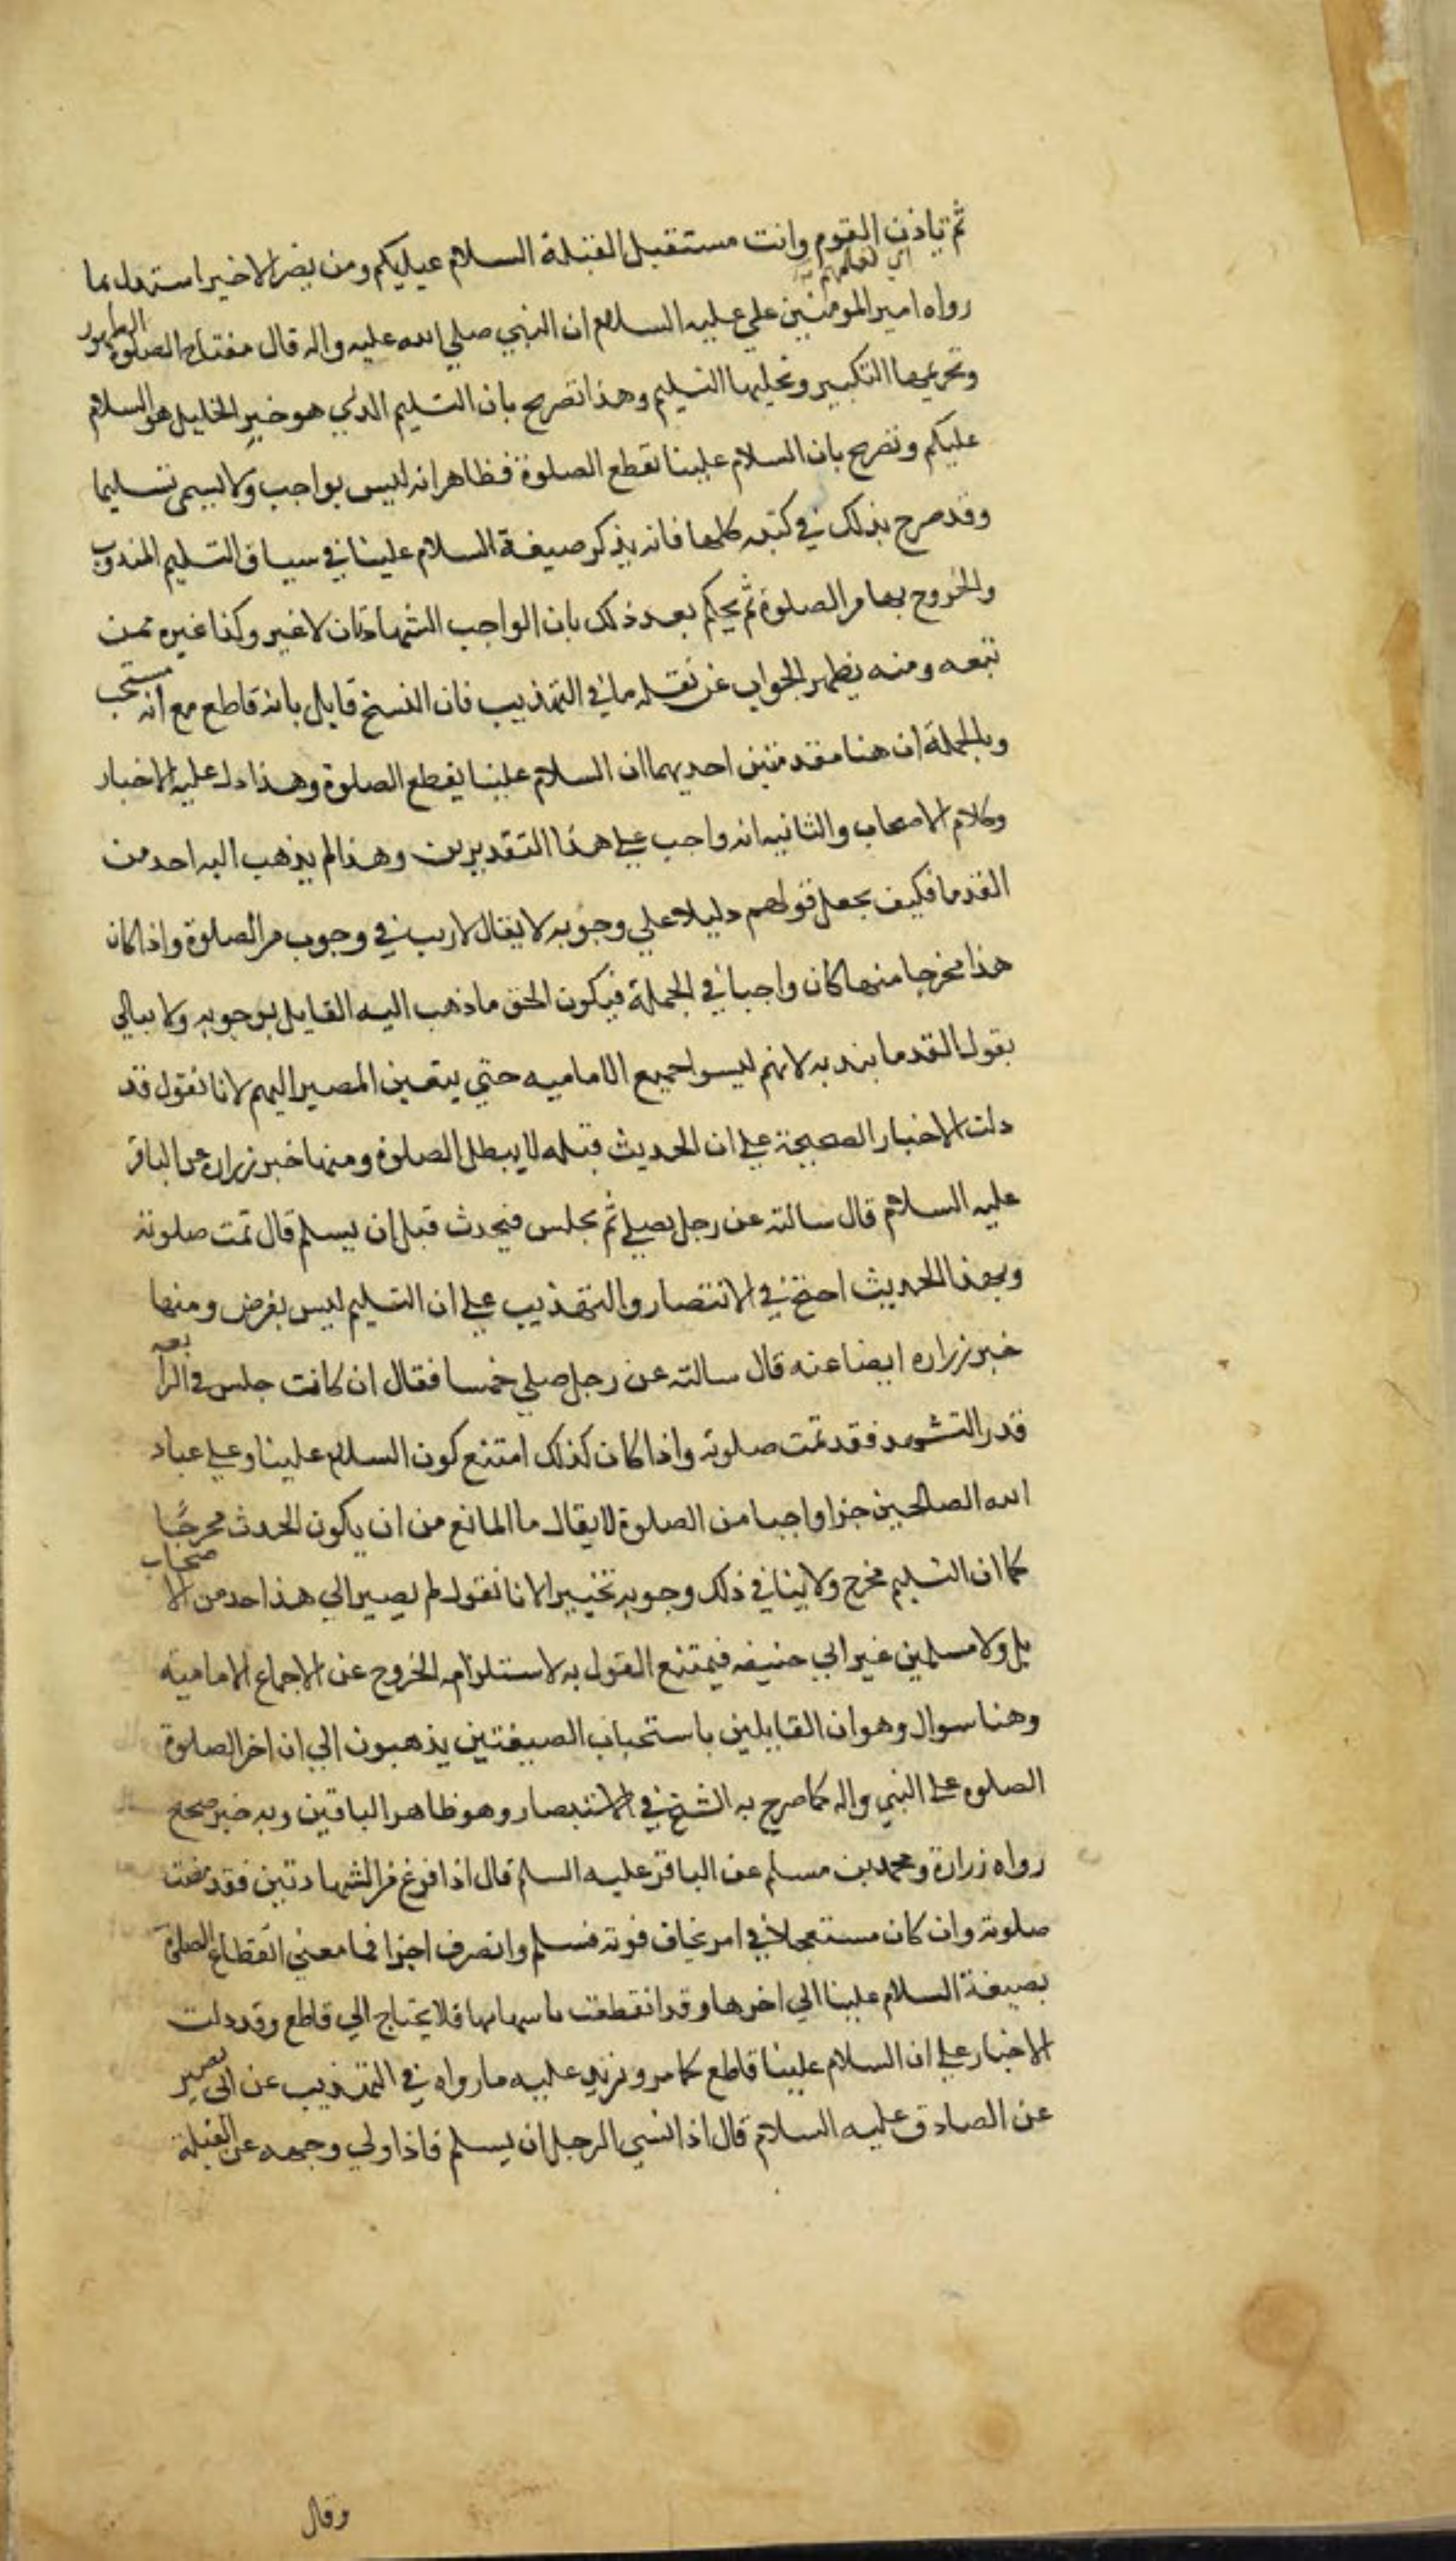 ثم تاذن القوم وانت مستقبل القبلة السلام عليكم ومن نصر الاخير استدل بما
اي تعلمهم
رواه امير المومنين علي عليه السلام ان النبي صلي الله عليه واله قال مفتاح الصلوة الطهور
وتحريمها التكبير وتحليلها التسليم وهذا تصريح بان التسليم الذي هو خير الخليل هو السلام
عليكم وتصريح بان السلام علينا تقطع الصلوة فظاهر انه ليس بواجب ولا يسمي تسليما
وقد صرح بذلك في كتبه كلها فانه يذكر صيغة السلام علينا في سياق التسليم المندوب
والخروج بها من الصلوة ثم يحكم بعد ذلك بان الواجب الشهادتان لا غير وكذا غيره ممن
تبعه ومنه يظهر الجواب عن نقله ما في التهذيب فان الشيخ قايل بانه قاطع مع انه مستحب
وبالجملة ان هنا مقدمتين احديهما ان السلام علينا يقطع الصلوة وهذا دل عليه الاخبار
وكلام الاصحاب والثانيه انه واجب علي هذا التقديرين وهذا لم يذهب اليه احد من
القدما فكيف يجعل قولهم دليلا علي وجوبه لا يقال لا ريب في وجوب من الصلوة واذا كان
هذا مخرجا منها كان واجبا في الجملة فيكون الحق ما ذهب اليه القايل بوجوبه ولا يبالي
بقول القدما بندبه لانهم ليسوا جميع الاماميه حتي يتعين المصير اليهم لانا نقول قد
دلت الاخبار الصحيحة علي ان الحديث قبله لا يبطل الصلوة ومنها خبر زراره عن الباقر
عليه السلام قال سالته عن رجل يصلي ثم يجلس فيحدث قبل ان يسلم قال تمت صلوته
وبهذا الحديث احتج في الانتصار والتهذيب علي ان التسليم ليس بفرض ومنها
خبر زراره ايضا عنه قال سالته عن رجل صلي خمسا فقال ان كانت جلس في الرابعه
قدر التشهد فقد تمت صلوته واذا كان كذلك امتنع كون السلام علينا وعلي عباد
الله الصالحين جزا واجبا من الصلوة لا يقال ما المانع من ان يكون الحدث مخرجا
كما ان التسليم مخرج ولا ينافي ذلك وجوبه تخييرا لانا نقول لم يصير الي هذا احد من الاصحاب
بل ولا مسلمين غير ابي حنيفه فيمتنع القول به لاستلزامه الخروج عن الاجماع الاماميه
وهنا سوال وهو ان القايلين باستحباب الصيغتين يذهبون الي ان اخر الصلوة
الصلوه علي النبي واله كما صرح به الشيخ في الاستبصار وهو ظاهر الباقين وبه خبر صحيح
رواه زرارة ومحمد بن مسلم عن الباقر عليه السلم قال اذا فرغ من الشهادتين فقد مضت
صلوته وان كان مستعجلا في امر يخاف فوته فسلم وانصرف اجزا فما معني انقطاع الصلوة
بصيغة السلام علينا الي اخرها وقد انقطعت باسبابها فلا يحتاج الي قاطع وقد دلت
الاخبار علي ان السلام علينا قاطع كما مر ونزيد عليه ما رواه في التهذيب عن ابي بصير
عن الصادق عليه السلام قال اذا نسي الرجل ان يسلم فاذا ولي وجهه عن القبلة
وقال